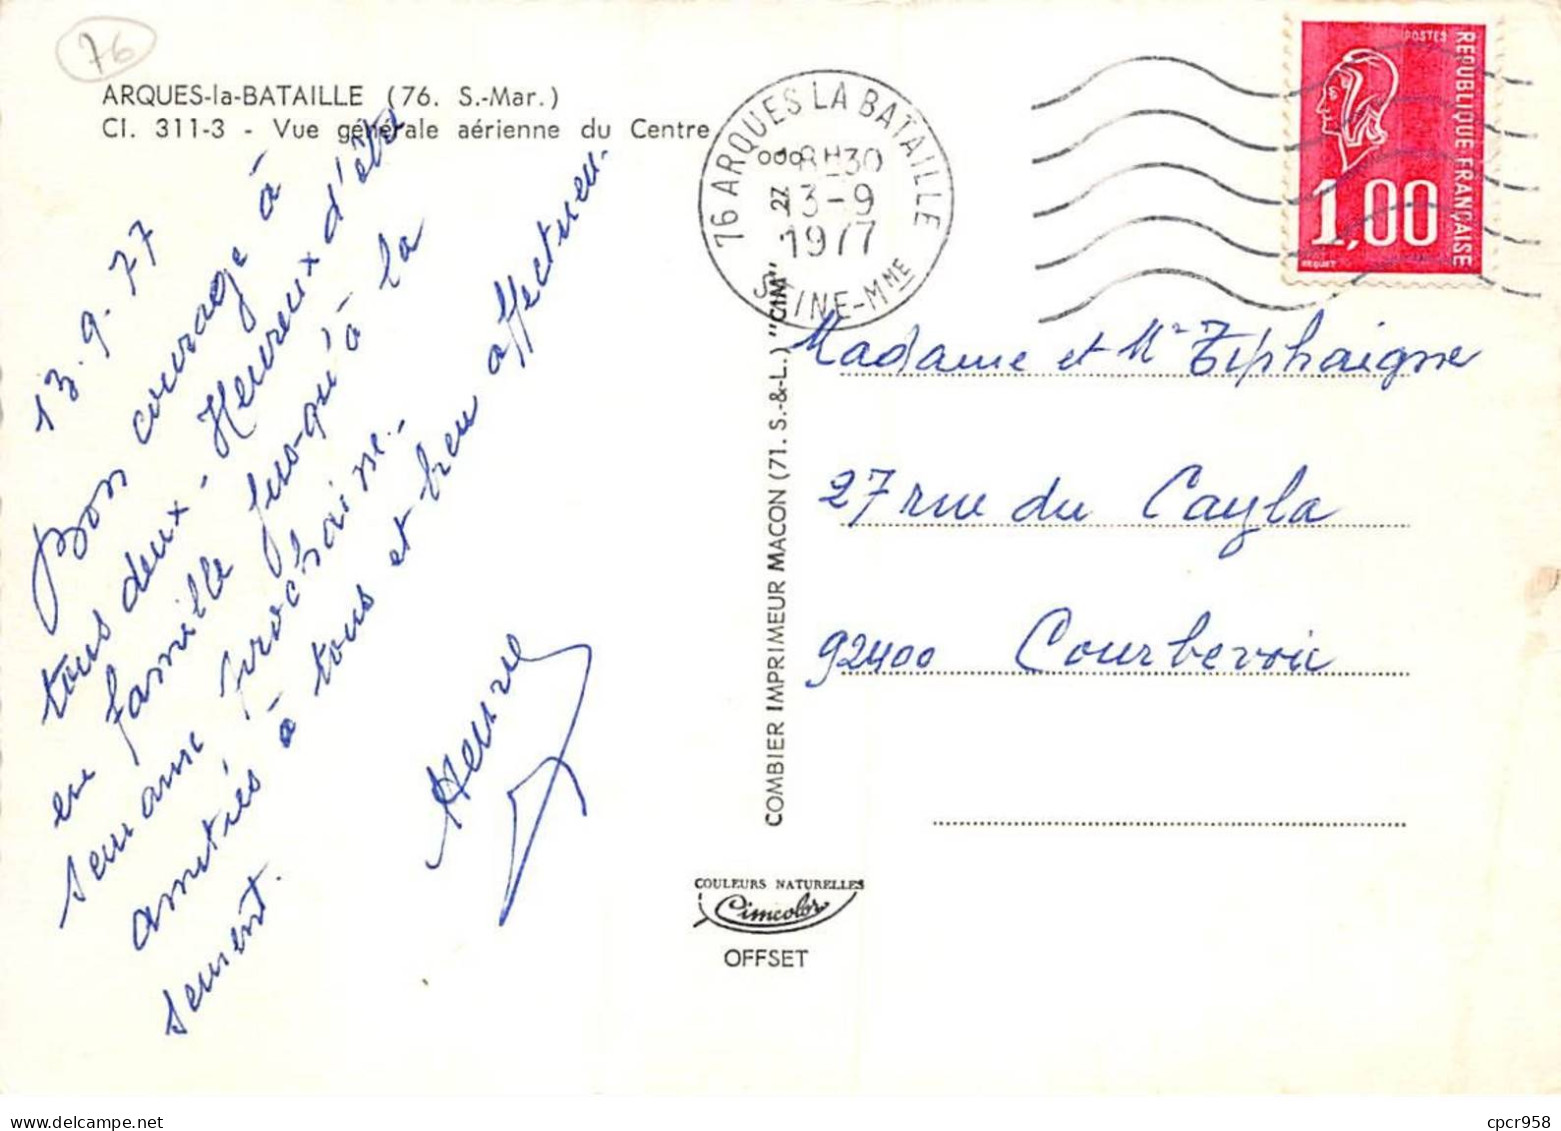 76
ARQUES-la-BATAILLE (76. S.-Mar.)
CI. 311-3 - Vue générale aérienne du Centre
13.9.77
Bon courage à
tous deux - Heureux d'être
en famille jus-qu'à la
semaine prochaine.-
amitiés à tous et bien affectueu-
sement.
76 ARQUES LA BATAILLE
18H30
13-9
1977
SEINE-MME
REPUBLIQUE FRANÇAISE
POSTES
1,00
BEQUET
COMBIER IMPRIMEUR MACON (71. S.-&-L.) "CIM"
Madame et Mr Tiphaigne
27 rue du Cayla
92400 Courbevoie
COULEURS NATURELLES
Cimcolor
OFFSET
delcampe.net
cpcr958